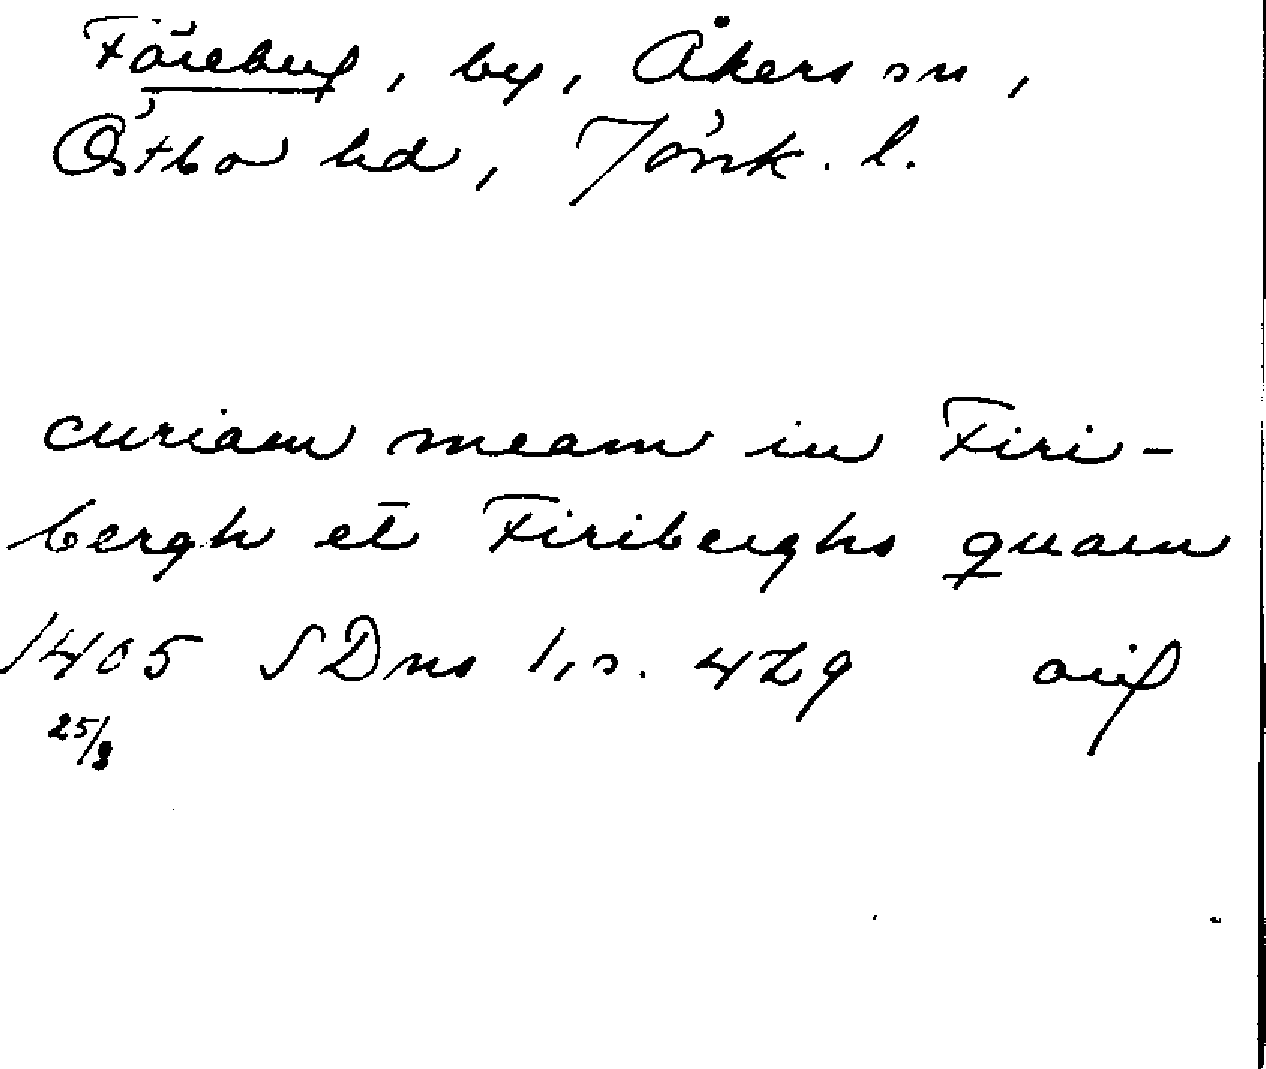 Föreberg, by, Åkers sn,
Östbo hd, Jönk. l.
curiam meam in Firi-
bergh et Firiberghs quam
1405 SDns 1, s. 429 orig
25/3